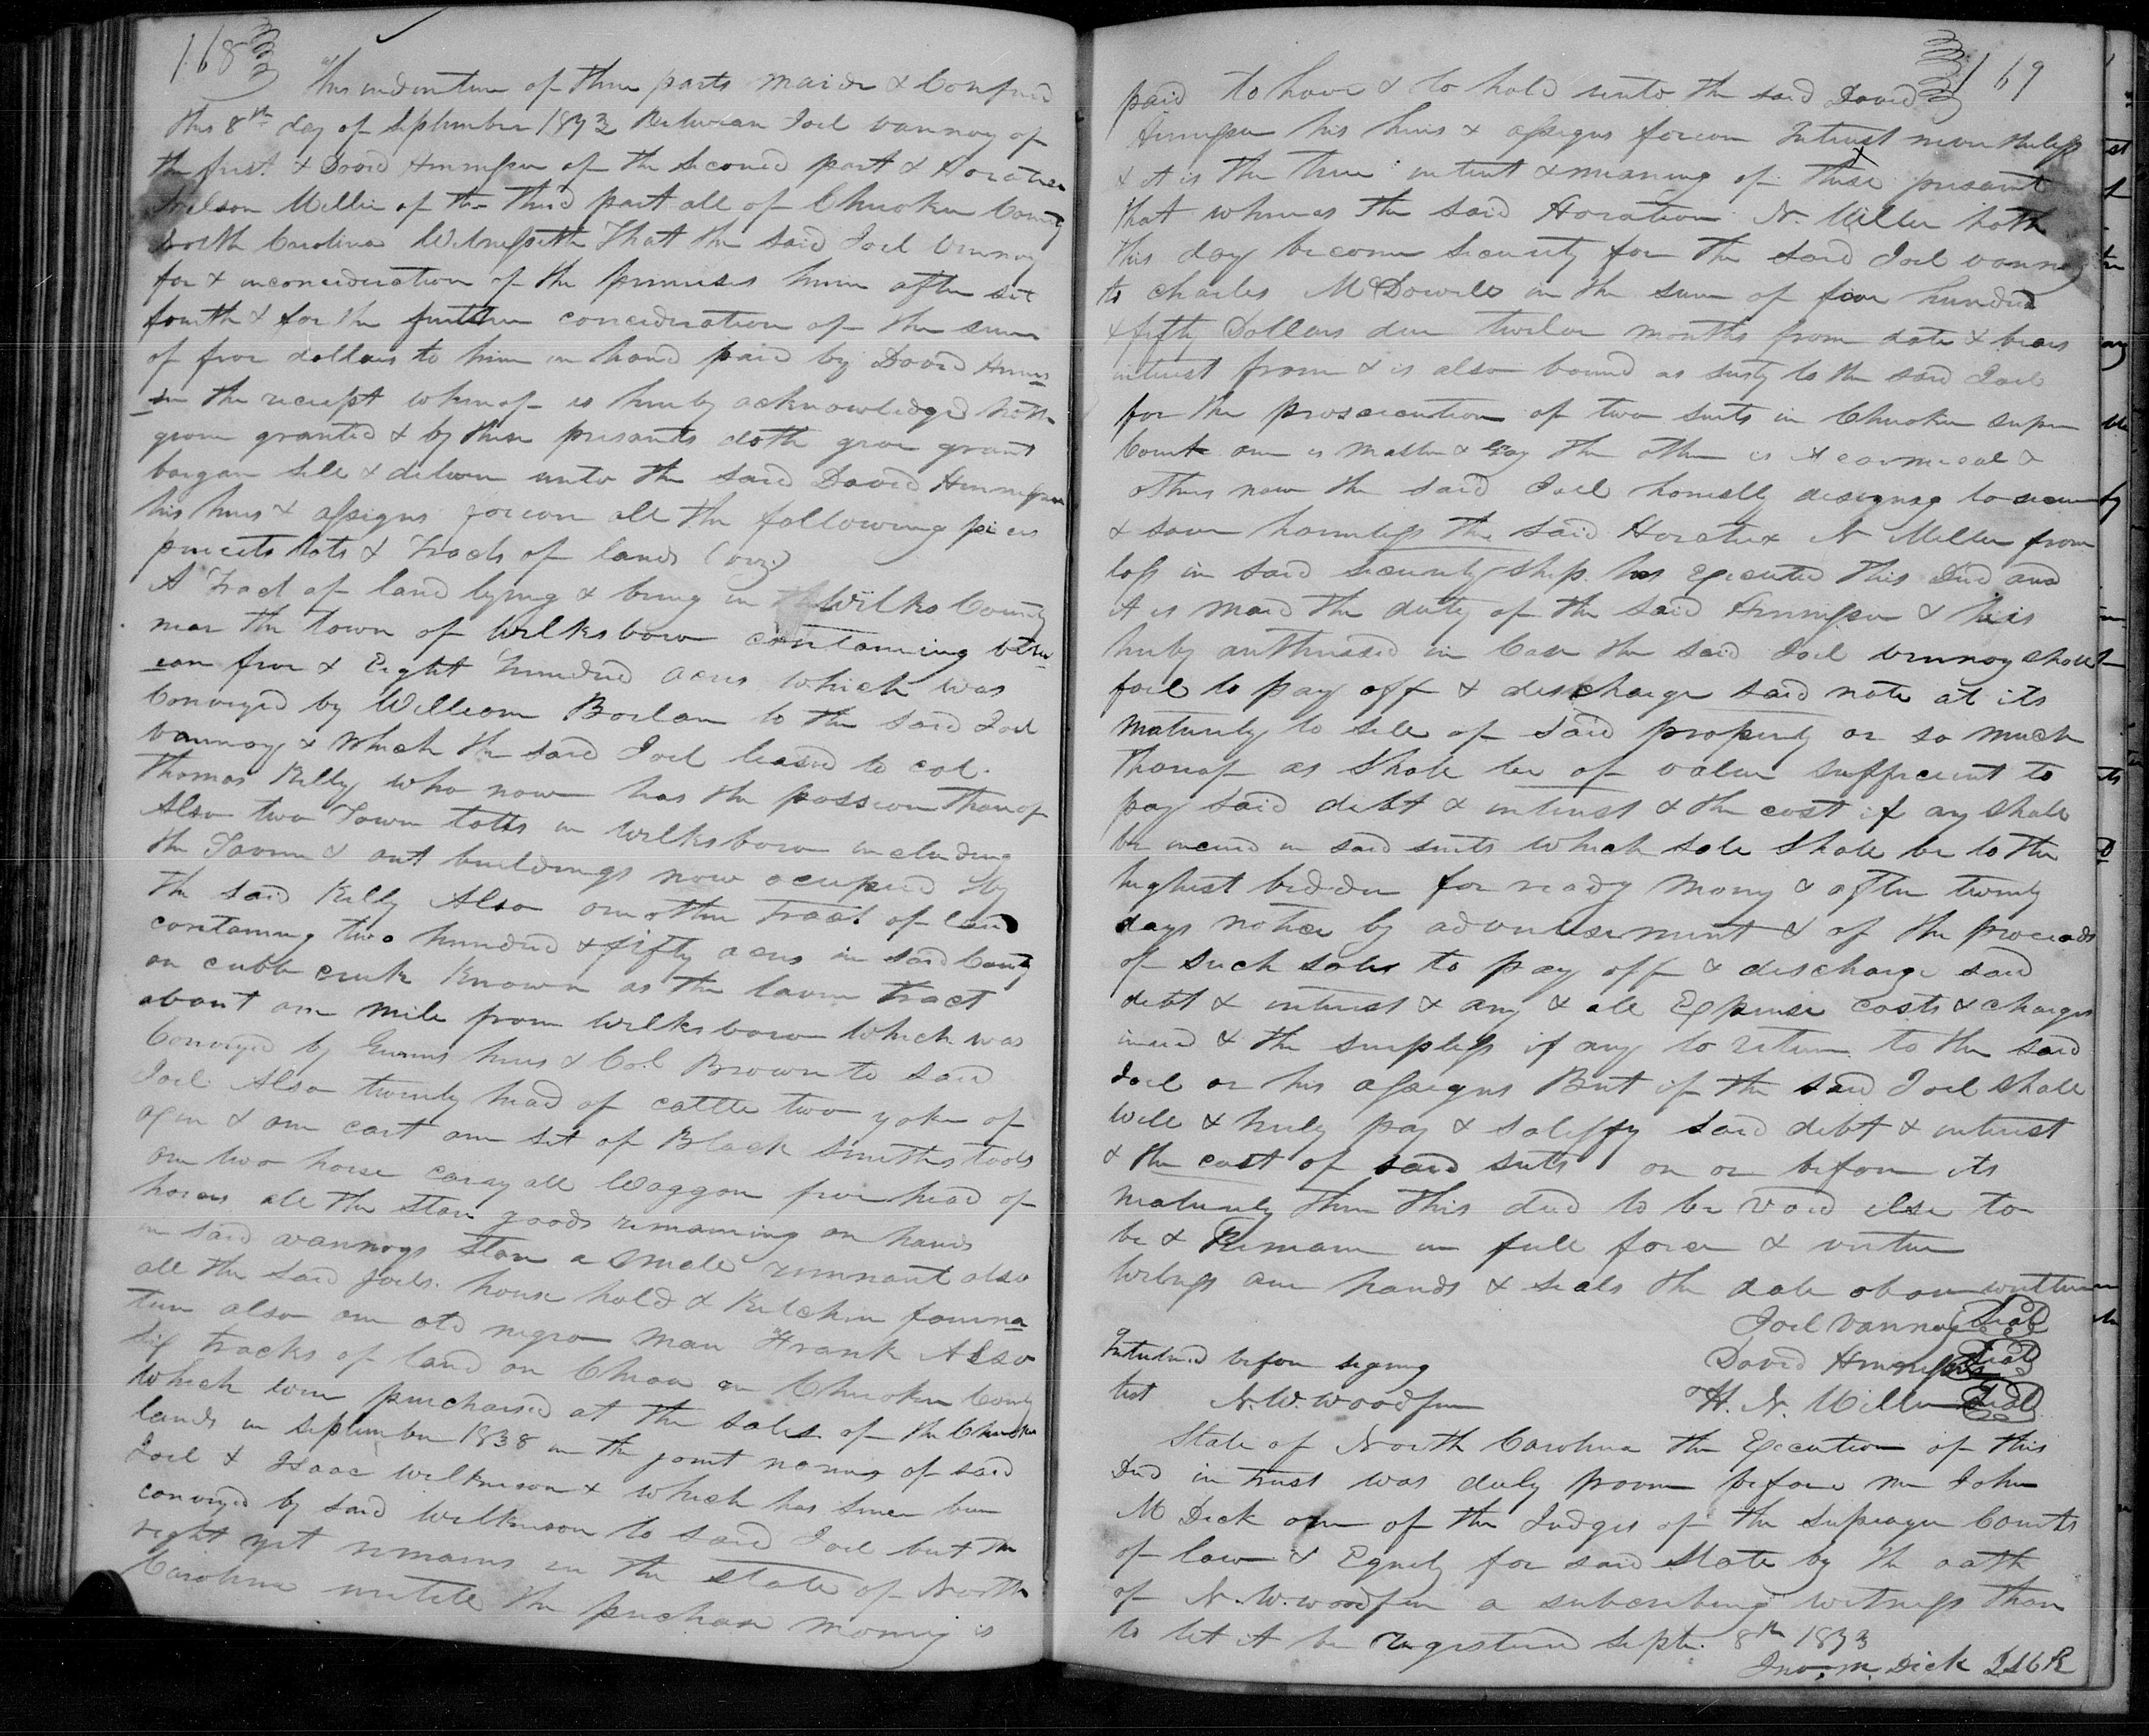 168
This indenture of three parts maide & Confired
this 8th day of September 1843 Between Joel Vannoy of
the first. & David Hennesse of the seconed part & Horatio
Nelson Miller of the third part all of Cherokee County
North Carolina Witnesseth That the said Joel Vannoy
for & inconcideration of the premises herein after set
fourth & for the further concideration of the sum
of five dollars to him in hand paid by David Hennes
se the receipt whereof is hereby acknowledged hath
given granted & by these presants doth give grant
bargan sell & deliver unto the said David Hennesse
his heirs & assigns forever all the following pieces
parcets lots & Tracts of lands (viz)
A Tract of land lying & being in the Wilks County
near the town of Wilksborow containing betw
ean five & Eight hundred acres which was
Conveyed by William Borlan to the said Joel
Vannoy & which the said Joel leased to col.
Thomas Kelly who now has the possion thereof
Also two Town lotts in Wilksborow including
the Tavern & out buildings now occupied by
the said Kelly Also one other Tract of land
containing two hundred & fifty acres in said County
on cubb creek known as the lavern tract
about one mile from Wilksborow which was
Conveyed by heirs & Col Brown to said
Joel Also twenty head of cattle two yoke of
oxen & one cart one set of Black Smiths tools
one two horse caryall Waggon five head of
horses all the store goods remaining on hands
in said vannoys store a small remnant also
all the said Joels. house hold & Kitchen fourna
ture also one old negro man Frank Also
six tracks of land on in Cherokee County
which were purchased at the sales of the Cherokee
lands in September 1838 in the joint names of said
Joel & Isaac Wilkinson & which has since been
conveyed by said Wilkinson to said Joel but the
right yet remains in the state of North
Carolina untill the purchase money is
169
paid to have & to hold unto the said David
Hennesse his heirs & assigns forever Intrust nevertheless
& it is the true intent & meaning of these presant
that whereas the said Horatio N. Miller hath
this day become Security for the said Joel vannoy
to charles McDowell in the sum of four hundred
& fifty Dollars due twelve months from date & bears
intrust from & is also bound as surty to the said Joel
for the proscecution of two suits in Cherokee super
Court one is & the other is &
others now the said Joel honestly designing to secure
& save harmless the said Horatio N Miller from
loss in said security ship has Executed this Deed and
it is maid the duty of the said Hennesse & he is
hereby authrised in Case the said Joel vannoy shall
fail to pay off & discharge said note at its
maturity to sell of said property or so much
thereof as shall be of value sufficient to
pay said debt & intrust & the cost if any shall
be incured in said suits which sale shall be to the
highest bidder for ready mony & after twenty
days notice by advertisement & of the proceads
of such sales to pay off & discharge said
debt & intrust & any & all Expense costs & charges
incured & the surpless if any to return to the said
Joel or his assigns But if the said Joel shall
well & truly pay & satisfy said debt & intrust
& the cost of said suts on or before its
maturity then this deed to be void else to
be & Remain in full force & virtue
witness our hands & seals the date above written
Joel Vannoy Seal
Interlined before signing David Hennessee Seal
test N. W. Woodfin H. N. Miller Seal
State of North Carolina the Execution of this
Deed in trust was duly proven before me John
M Dick one of the Judges of the Supearer Courts
of law & Equity for said State by the oath
of N. W. woodfin a subcribing witness there
to let it be registered Septr. 8th 1843
Jno. M. Dick